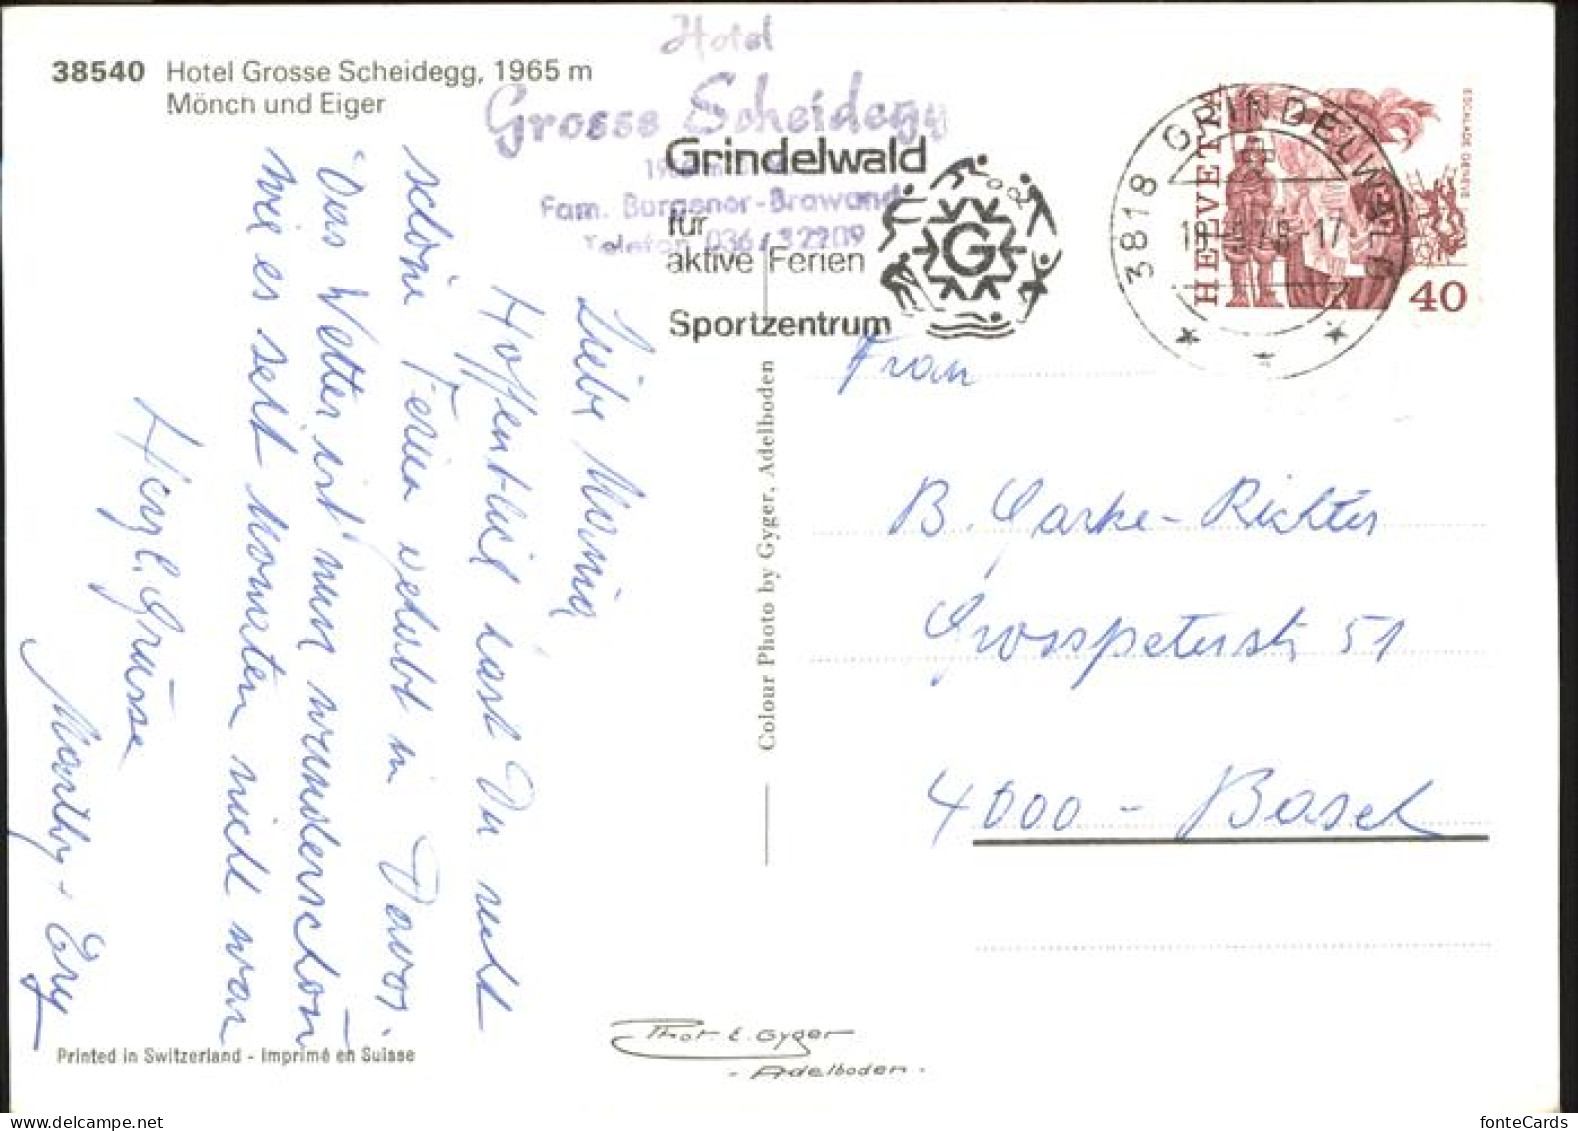 38540 Hotel Grosse Scheidegg, 1965 m
Mönch und Eiger
Hotel
Grosse Scheidegg
Fam. Burgener-Brawand
Telefon 036 / 32209
Grindelwald
für
aktive Ferien
Sportzentrum
G
3818 GRINDELWALD
HELVETIA
ESCALADE GENÈVE
40
Hoffentlich hast Du recht
schöne Ferien gehabt in Davos.
Das Wetter ist nun wunderschön
wie es seit Monaten nicht war
Herzl. Grüsse
Colour Photo by Gyger, Adelboden
Frau
B. Garke-Richter
Grosspeterstr 51
4000 - Basel
Printed in Switzerland - Imprimé en Suisse
Phot. E. Gyger
- Adelboden -
fonteCards